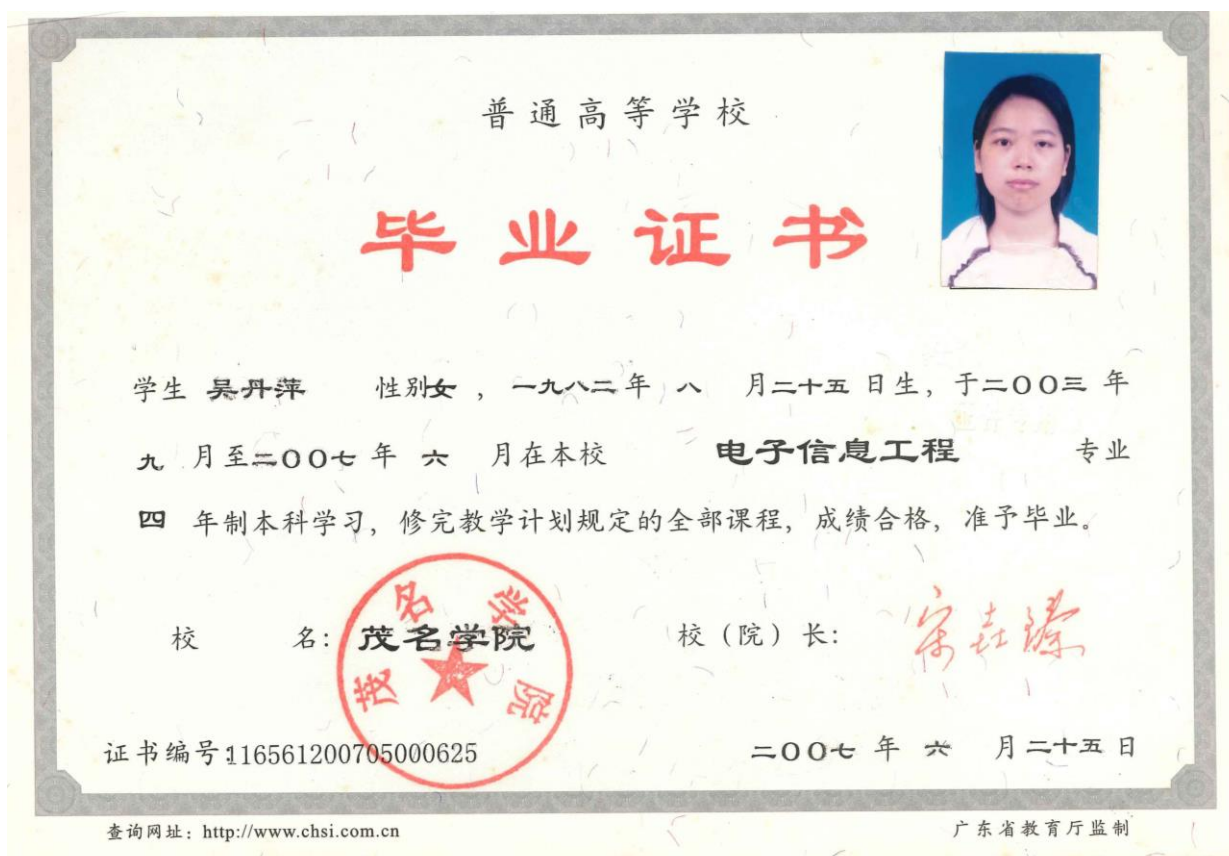 普通高等学校
毕业证书
学生 吴丹萍 性别女，一九八二年 八 月二十五日生，于二〇〇三 年
九 月至二〇〇七 年 六 月在本校 电子信息工程 专业
四 年制本科学习，修完教学计划规定的全部课程，成绩合格，准予毕业。
校 名：茂名学院 校（院）长：
茂名学院
证书编号:116561200705000625 二〇〇七 年 六 月二十五日
查询网址：http://www.chsi.com.cn 广东省教育厅监制